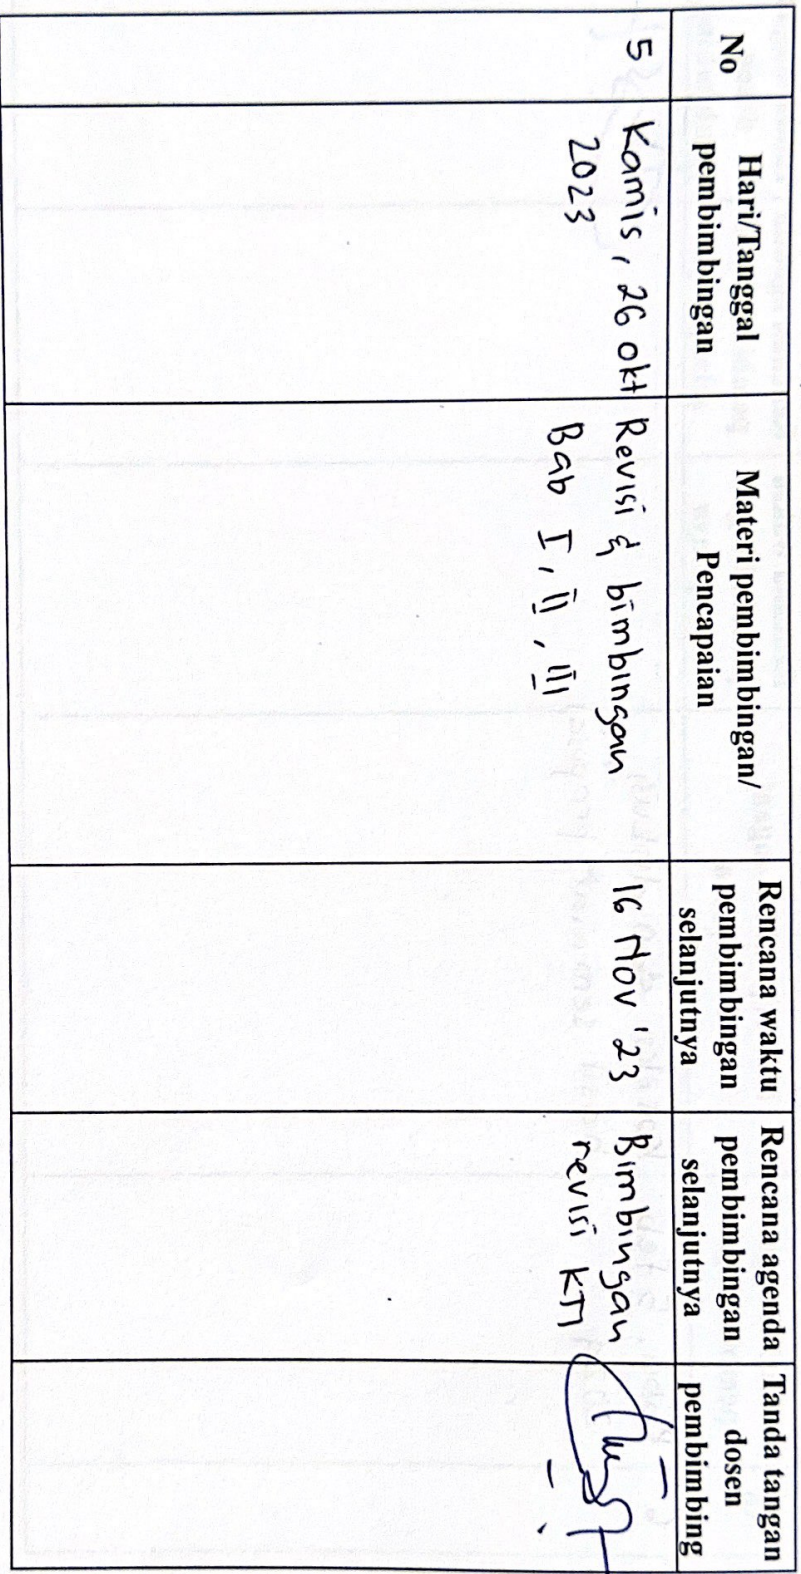 No
Hari/Tanggal
pembimbingan
Materi pembimbingan/
Pencapaian
Rencana waktu
pembimbingan
selanjutnya
Rencana agenda
pembimbingan
selanjutnya
Tanda tangan
dosen
pembimbing
5
Kamis, 26 okt
2023
Revisi & bimbingan
Bab I, II, III
16 Nov '23
Bimbingan
revisi KTI